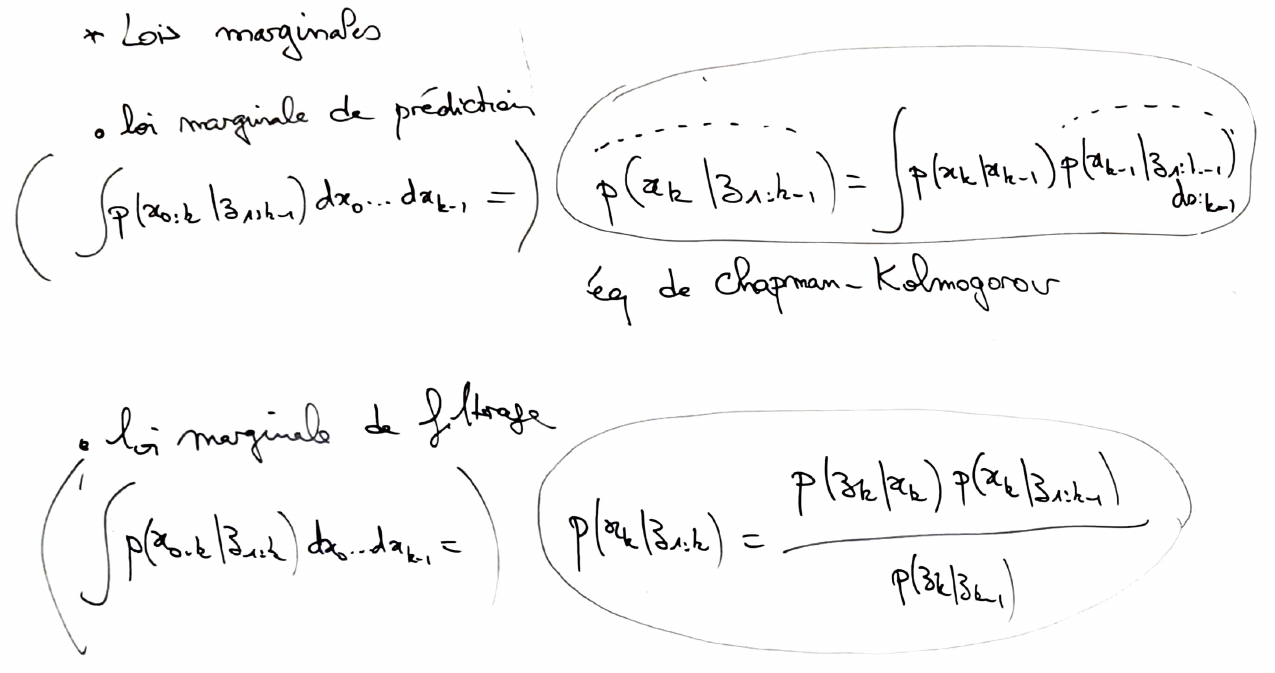 * Lois marginales
• loi marginale de prédiction
( ∫ p(x₀:k | z₁:k-1) dx₀ ... dxk-1 = ) p(xk | z₁:k-1) = ∫ p(xk | xk-1) p(xk-1 | z₁:k-1)
d₀:k-1
éq de Chapman-Kolmogorov
• loi marginale de filtrage
( ∫ p(x₀:k | z₁:k) dx₀ ... dxk-1 = ) p(xk | z₁:k) = p(zk | xk) p(xk | z₁:k-1)
p(zk | zk-1)